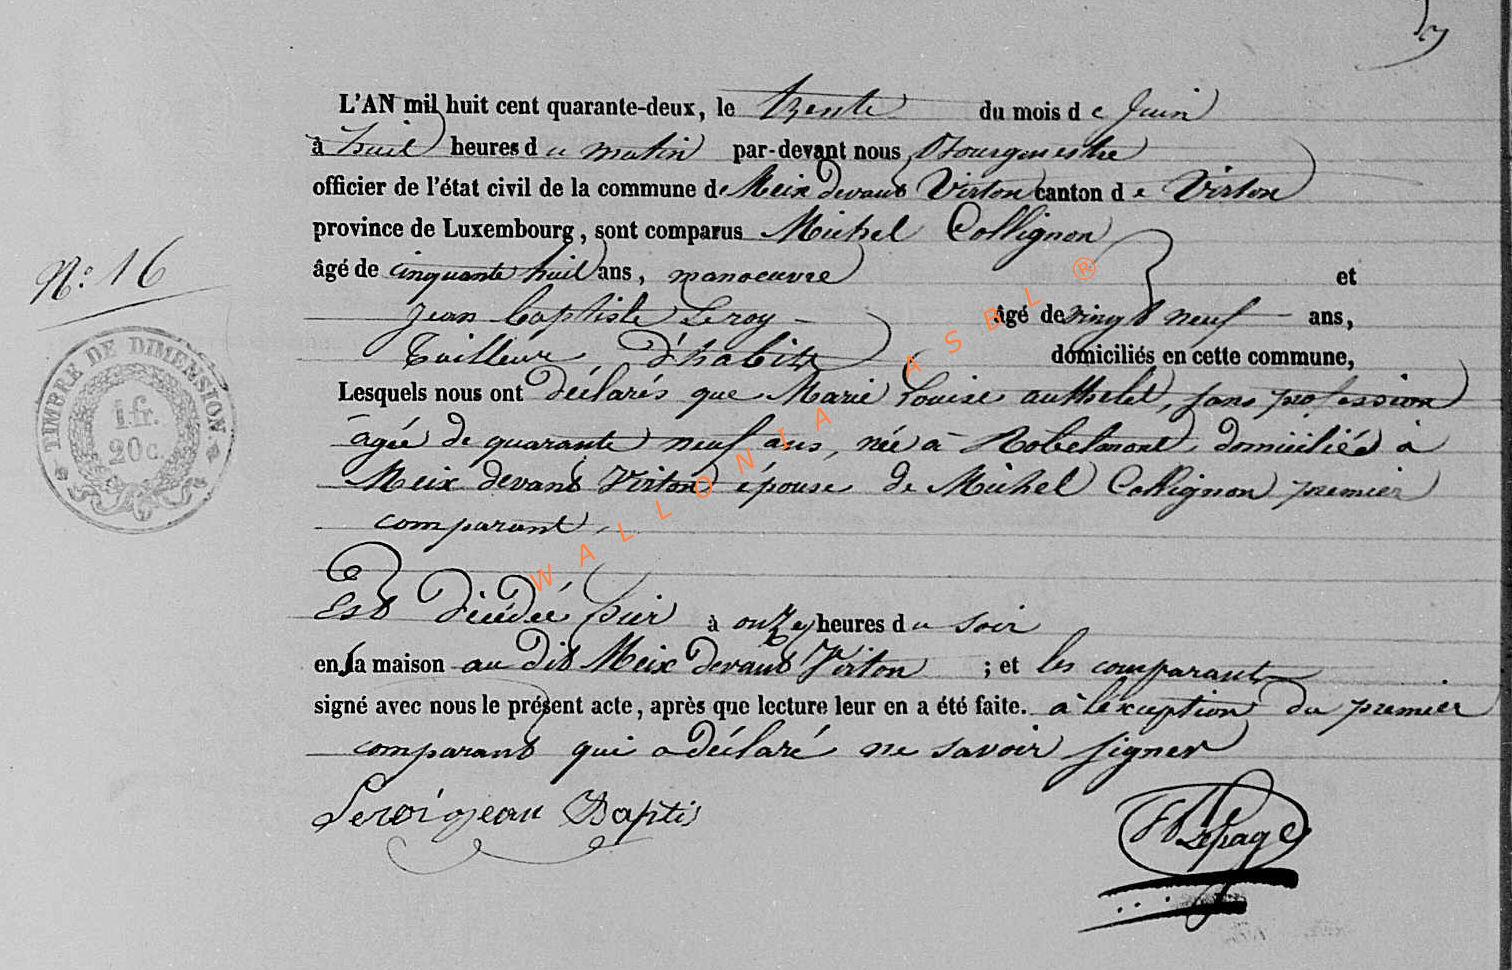 L'AN mil huit cent quarante-deux, le trente du mois de Juin
à huit heures du matin par-devant nous Bourgmestre
officier de l'état civil de la commune de Meix devant Virton canton de Virton
province de Luxembourg, sont comparus Michel Collignon
N.º 16
âgé de cinquante huit ans, manoeuvre et
Jean Baptiste Leroy âgé de vingt neuf ans,
Tailleur d'habits domiciliés en cette commune,
TIMBRE DE DIMENSION
1 fr.
20 c.
Lesquels nous ont déclarés que Marie Louise authelet, sans profession
âgée de quarante neuf ans, née à Robelmont, domiciliée à
Meix devant Virton épouse de Michel Collignon premier
comparant.
WALLONIA ASBL ®
Est décédée hier à onze heures du soir
en sa maison au dit Meix devant Virton ; et les comparant
signé avec nous le présent acte, après que lecture leur en a été faite. à l'exception du premier
comparant qui a déclaré ne savoir signer
Leroi jean Baptis
Lepage